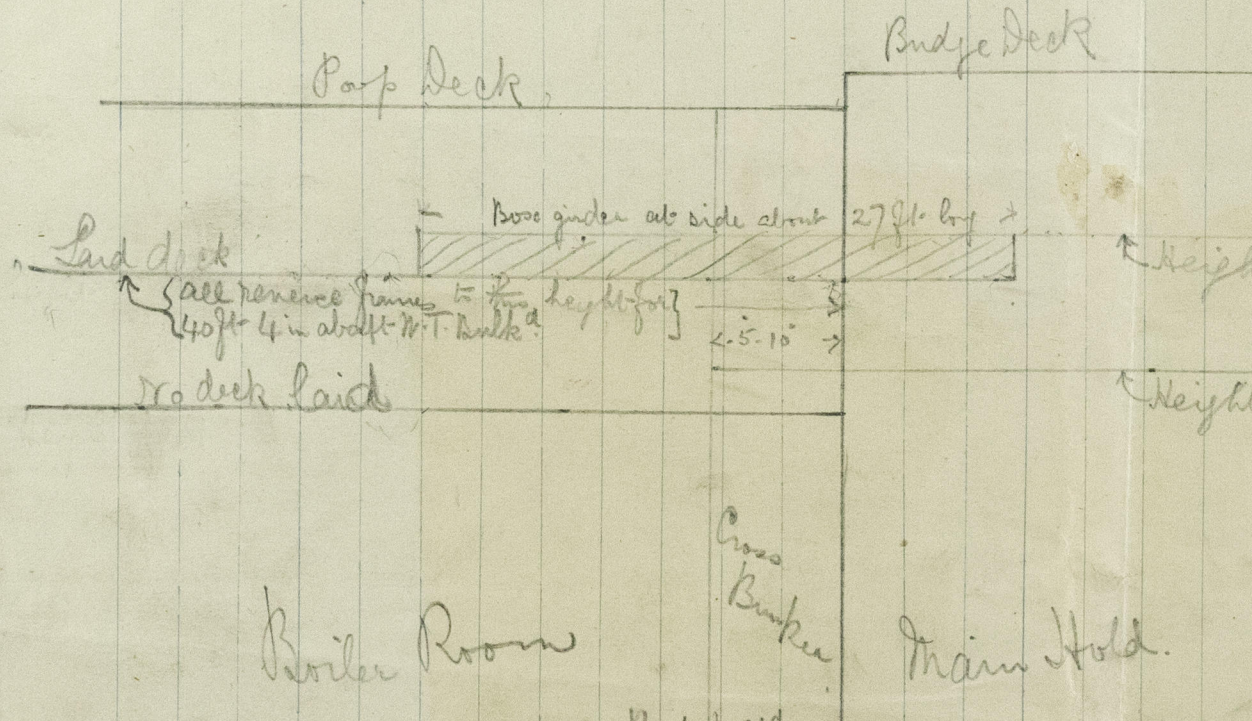 Bridge Deck
Poop Deck
Box girder at side about 27 ft long
Laid deck
Heigh
all reverse frames to this height for
40 ft 4 in abaft W.T. Bulkd
5-10
No deck laid
Height
Cross
Bunker
Boiler Room
Main Hold.